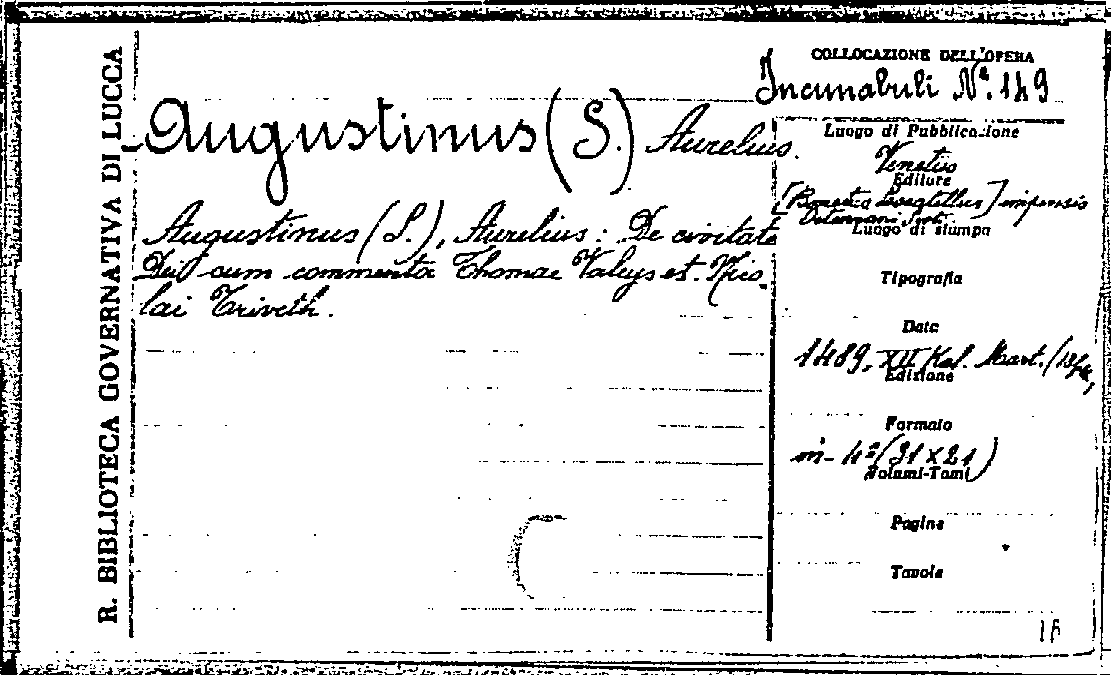 R. BIBLIOTECA GOVERNATIVA DI LUCCA
COLLOCAZIONE DELL'OPERA
Incunabuli Nº. 149
Augustinus (S.) Aurelius.
Augustinus (S.), Aurelius: De civitate
Dei cum commento Thomae Valeys et. Nico-
lai Triveth.
Luogo di Pubblicazione
Venetiis
Editore
impensis
Luogo di stampa
Tipografia
Data
1489, XII Kal. Mart. (18
Edizione
Formato
in-4º (31 x 21)
Volumi-Tomi
Pagine
Tavole